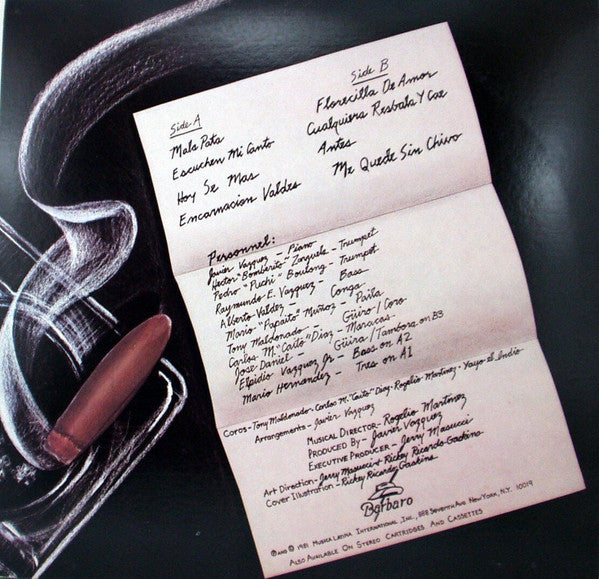 Side A
Mala Pata
Escuchen Mi Canto
Hoy Se Mas
Encarnacion Valdes
Side B
Florecilla De Amor
Cualquiera Resbala Y Cae
Antes
Me Quede Sin Chivo
Personnel:
Javier Vazquez - Piano
Hector "Bomberito" Zarzuela - Trumpet
Pedro "Puchi" Boulong - Trumpet
Raymundo E. Vazquez - Bass
Alberto Valdez - Conga
Mario "Papaito" Muñoz - Paila
Tony Maldonado - Güiro / Coro
Carlos M. "Caito" Diaz - Maracas
Jose Daniel - Güira / Tambora on B3
Elpidio Vazquez Jr - Bass on A2
Mario Hernandez - Tres on A1
Coros - Tony Maldonado - Carlos M. "Caito" Diaz - Rogelio Martinez - Yayo el Indio
Arrangements - Javier Vazquez
Musical Director - Rogelio Martinez
Produced By - Javier Vazquez
Executive Producer - Jerry Masucci
Art Direction - Jerry Masucci & Rickey Ricardo Gaskins
Cover Illustration - Rickey Ricardo Gaskins
Bárbaro
℗ and © 1981 Musica Latina International, Inc., 888 Seventh Ave New York, N.Y. 10019
Also Available On Stereo Cartridges And Cassettes